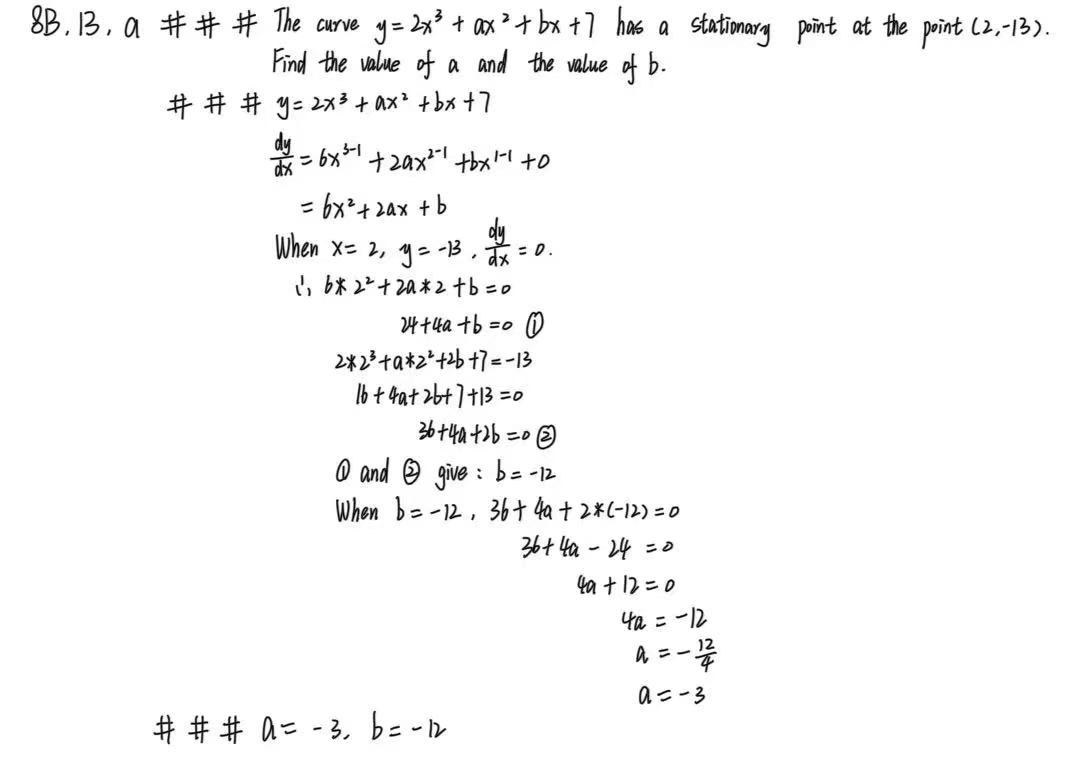 8B. 13. a # # # The curve y = 2x³ + ax² + bx + 7 has a stationary point at the point (2, -13).
Find the value of a and the value of b.
# # # y = 2x³ + ax² + bx + 7
dy/dx = 6x³⁻¹ + 2ax²⁻¹ + bx¹⁻¹ + 0
= 6x² + 2ax + b
When x = 2, y = -13, dy/dx = 0.
∴ 6*2² + 2a*2 + b = 0
24 + 4a + b = 0 ①
2*2³ + a*2² + 2b + 7 = -13
16 + 4a + 2b + 7 + 13 = 0
36 + 4a + 2b = 0 ②
① and ② give : b = -12
When b = -12, 36 + 4a + 2*(-12) = 0
36 + 4a - 24 = 0
4a + 12 = 0
4a = -12
a = -12/4
a = -3
# # # a = -3, b = -12